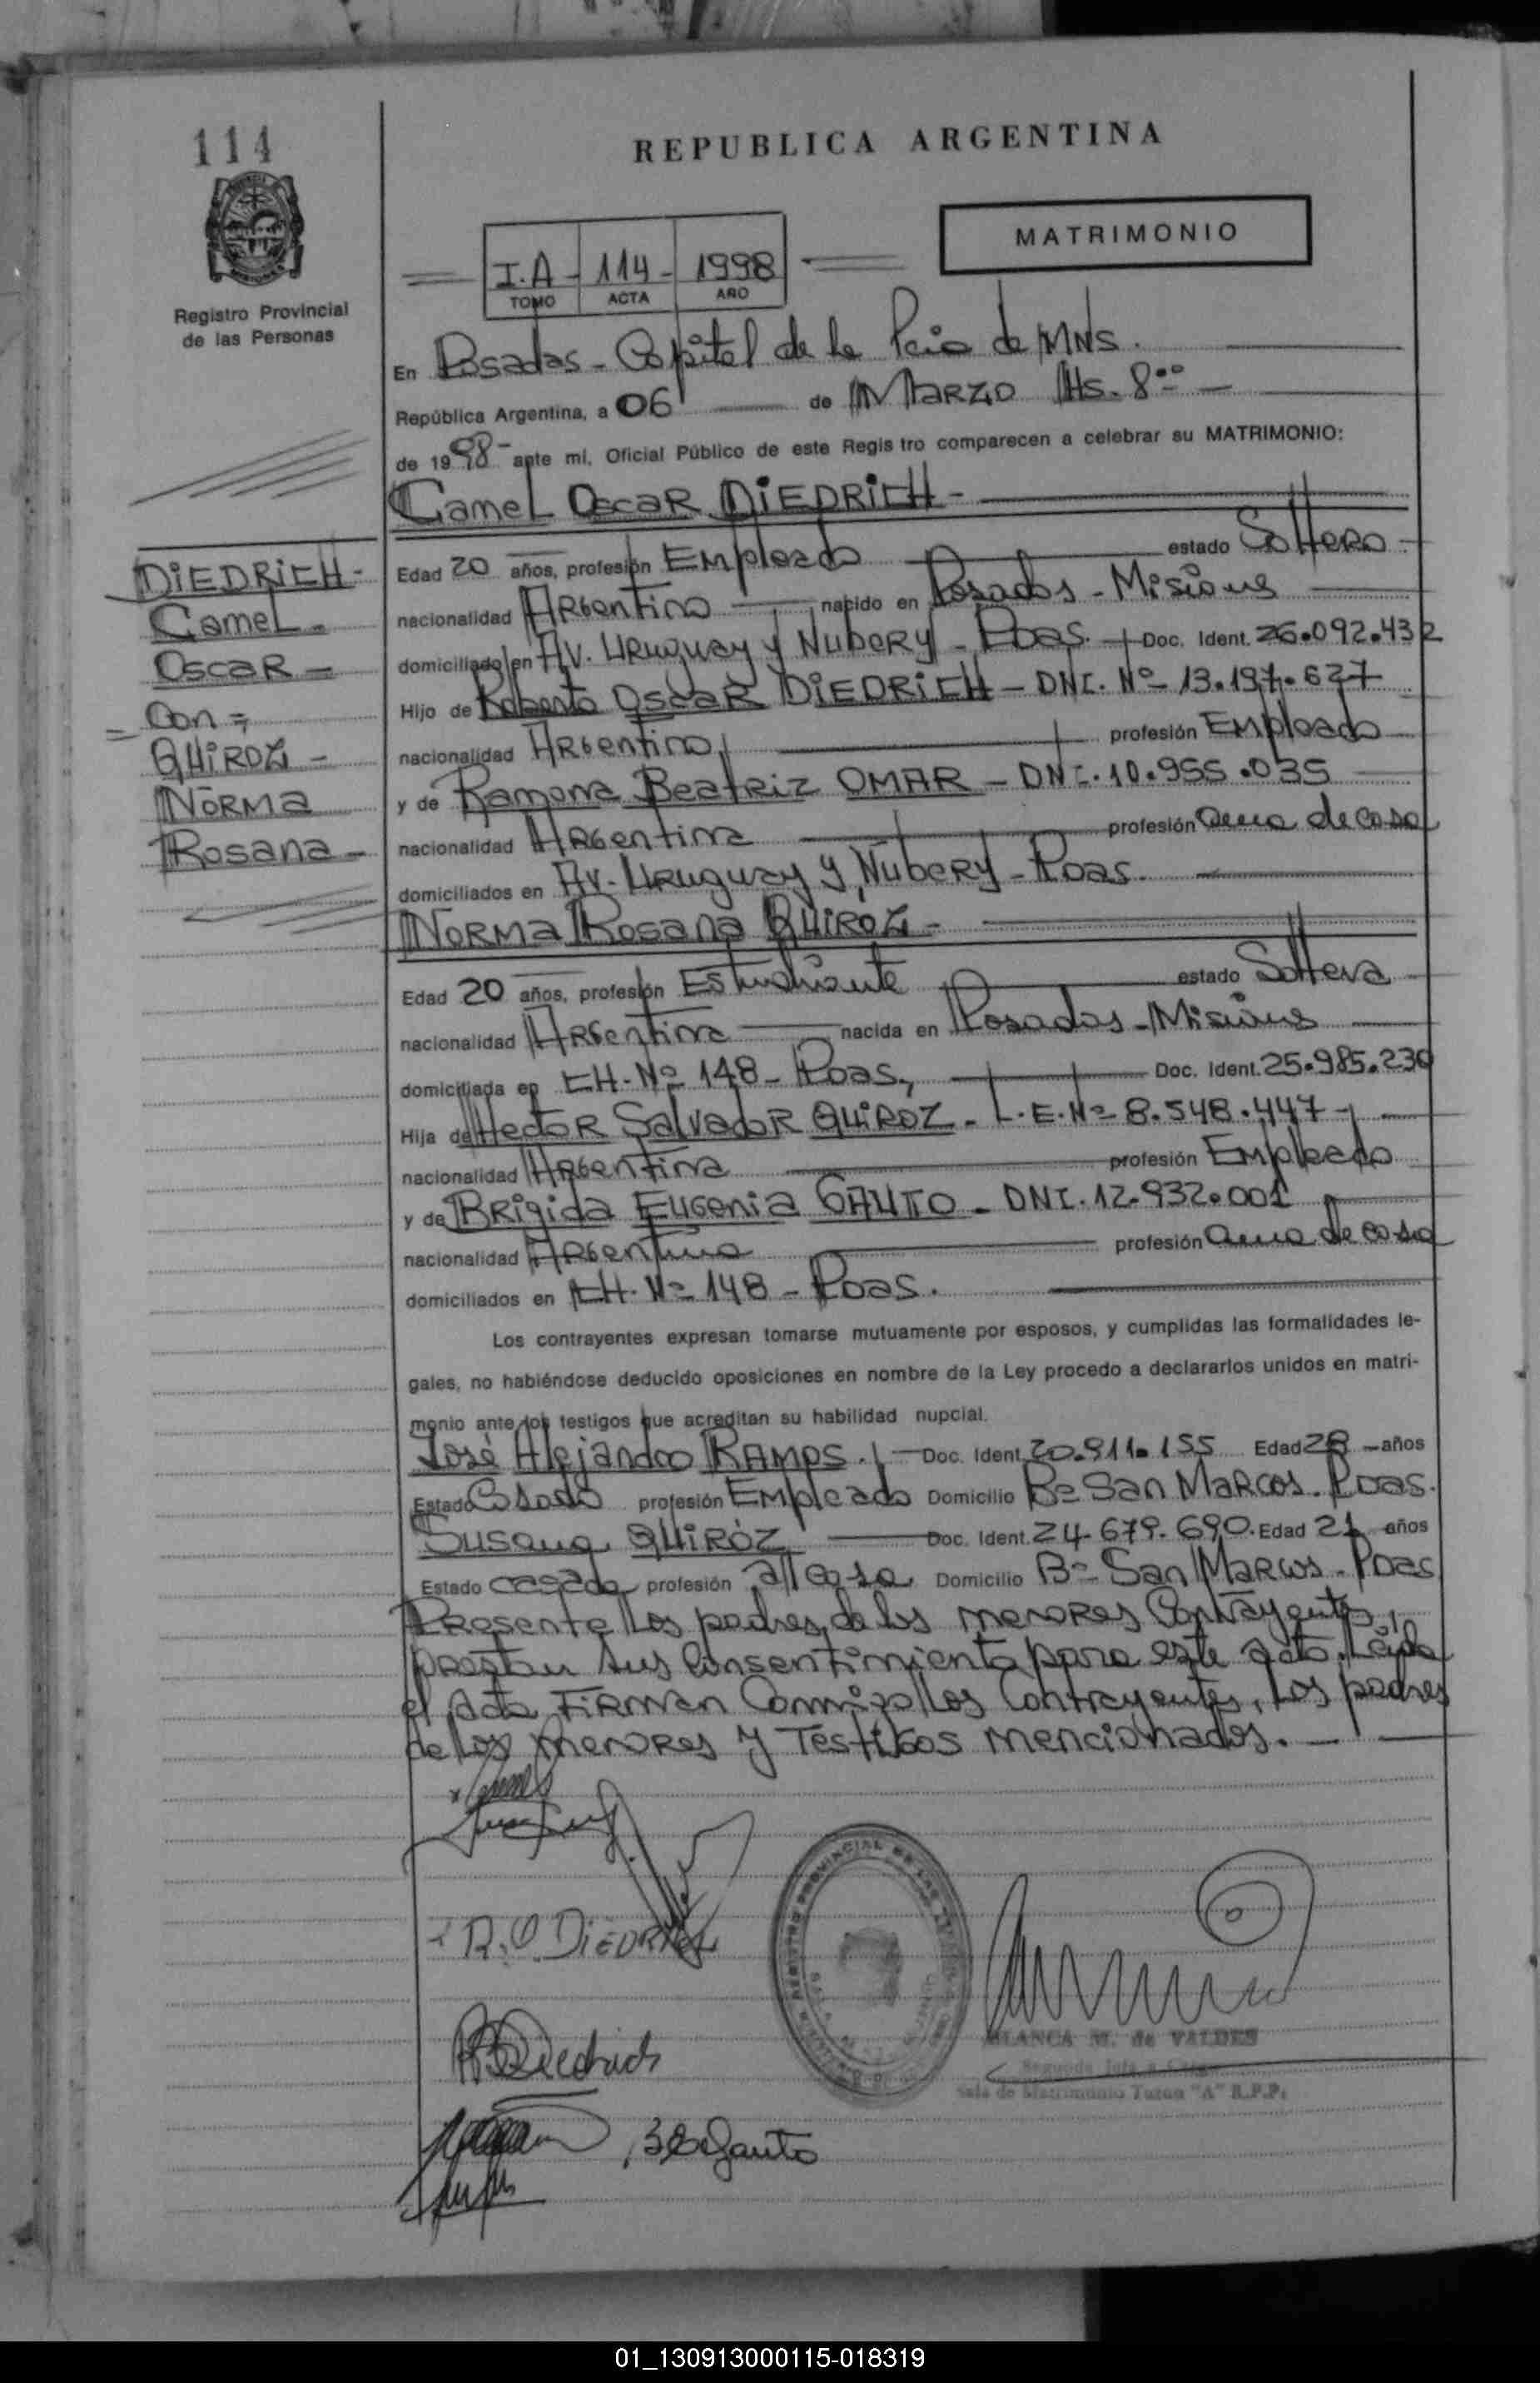 114
REPUBLICA ARGENTINA
MATRIMONIO
Registro Provincial
de las Personas
I.A - 114 - 1998
TOMO ACTA AÑO
En Posadas - Capital de la Pcia de MNS.
República Argentina, a 06 de MARZO Hs. 8:00 -
de 1998 - ante mi, Oficial Público de este Regis tro comparecen a celebrar su MATRIMONIO:
Camel Oscar DIEDRICH -
DIEDRICH -
Camel -
Oscar -
= Con =
QUIROZ -
Norma
Rosana -
Edad 20 años, profesión Empleado estado Soltero -
nacionalidad Argentino nacido en Posadas - Misiones
domiciliado en AV. Uruguay y Nubery - Pdas. - Doc. Ident. 26.092.432
Hijo de Roberto Oscar DIEDRICH - DNI. Nº 13.197.627
nacionalidad Argentino, profesión Empleado
y de Ramona Beatriz OMAR - DNI. 10.955.035
nacionalidad Argentina profesión ama de casa
domiciliados en AV. Uruguay y Nubery - Pdas.
Norma Rosana QUIROZ -
Edad 20 años, profesión Estudiante estado Soltera
nacionalidad Argentina nacida en Posadas - Misiones
domiciliada en CH. Nº 148 - Pdas, Doc. Ident. 25.985.230
Hija de Hector Salvador QUIROZ - L.E. Nº 8.548.447 -
nacionalidad Argentina profesión Empleado
y de Brigida Eugenia GAUTO - DNI. 12.932.001
nacionalidad Argentina profesión ama de casa
domiciliados en CH. Nº 148 - Pdas.
Los contrayentes expresan tomarse mutuamente por esposos, y cumplidas las formalidades le-
gales, no habiéndose deducido oposiciones en nombre de la Ley procedo a declararlos unidos en matri-
monio ante los testigos que acreditan su habilidad nupcial.
José Alejandro RAMOS. - Doc. Ident. 20.911.155 Edad 28 - años
Estado Casado profesión Empleado Domicilio Bº San Marcos. Pdas.
Susana QUIRÓZ Doc. Ident. 24.679.690. Edad 21 años
Estado casada profesión a/casa Domicilio Bº San Marcos - Pdas
Presente los padres de los menores Contrayentes,
prestan sus Consentimiento para este acto. Leída
el Acta FIRMAN Conmigo los Contrayentes, los padres
de los menores y Testigos mencionados. -
R.O. DIEDRICH
RBDiedrich
BEGauto
BLANCA M. de VALDES
Segunda Jefa a Cargo
Sala de Matrimonio Turno "A" R.P.P.
01_130913000115-018319